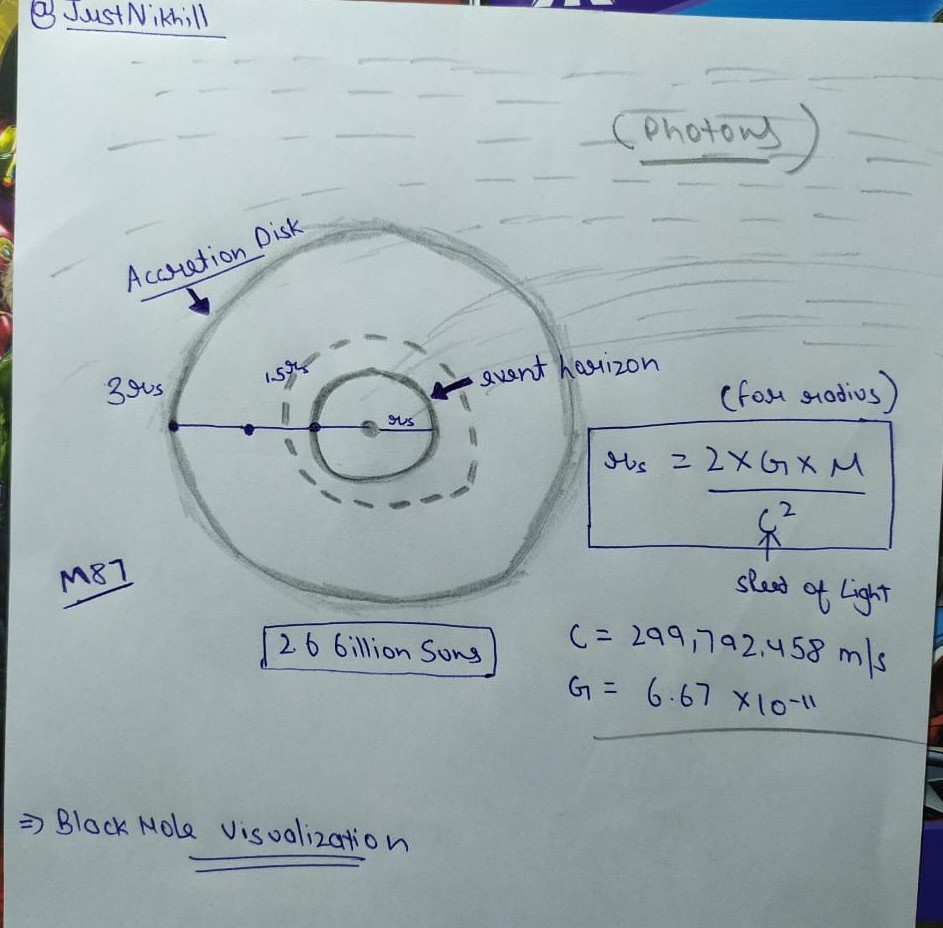 @ JustNikhill
(Photons)
Accretion Disk
3rs
1.5rs
event horizon
rs
(for radius)
rs = 2 X G X M
C²
speed of Light
M87
26 billion Suns
C = 299,792,458 m/s
G = 6.67 X10-11
⇒ Black Hole Visualization